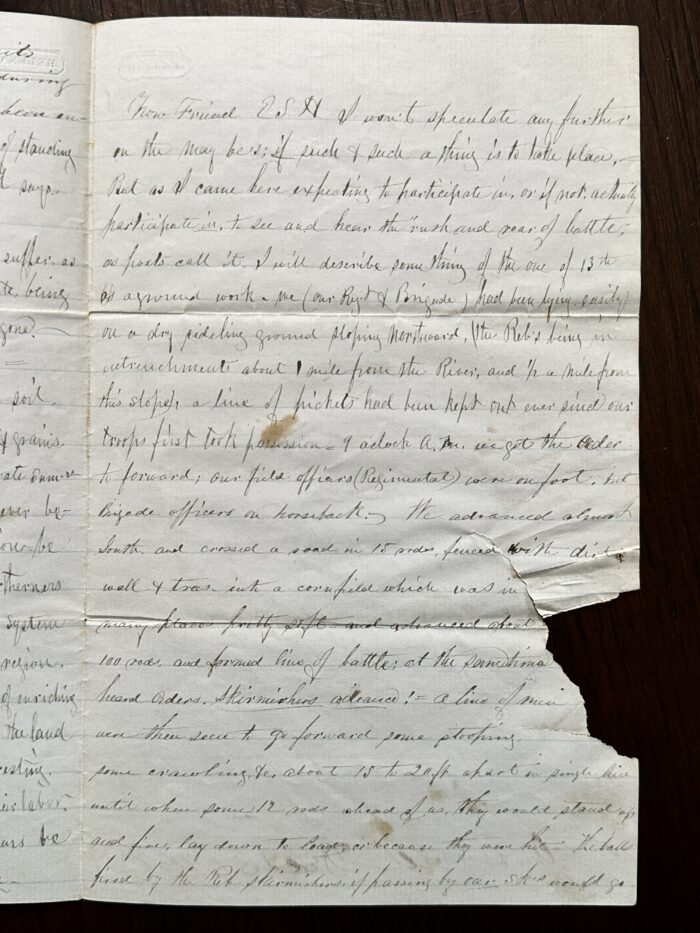 its
during
been en-
of standing
I says
suffer as
te, being
gone.
soil.
& grains.
rate
ever be-
You be
therners
System
region.
of enriching
the land
esting.
ir labor.
ears be
Now Friend E S H I won't speculate any further
on the may be's; if such & such a thing is to take place,
But as I came here expecting to participate in, or if not, actually
participate in, to see and hear the "rush and roar of battle",
as poets call it, I will describe something of the one of 13th
as a ground work - we (our Regt & Brigade) had been lying easily
on a dry sideling ground sloping Northward, (the Reb's being in
entrenchments about 1 mile from the River, and ½ a mile from
this slope), a line of pickets had been kept out ever since our
troops first took possession - 9 oclock A.M. we got the order
to forward; our field officers (Regimental) were on foot, but
Brigade officers on horseback. - We advanced almost
South, and crossed a road in 15 rods, fenced with dirt
wall & into a cornfield which was in
many places pretty soft and advanced about
100 rods, and formed line of battle; at the same time
heard orders, Skirmishers advance! - a line of men
were then seen to go forward some stooping,
some crawling, &c, about 15 to 20 ft apart in single line
until when some 12 rods ahead of us, they would stand up
and fire, lay down to load, or because they were hit - The balls
fired by the Reb skirmishers if passing by our sk's would go